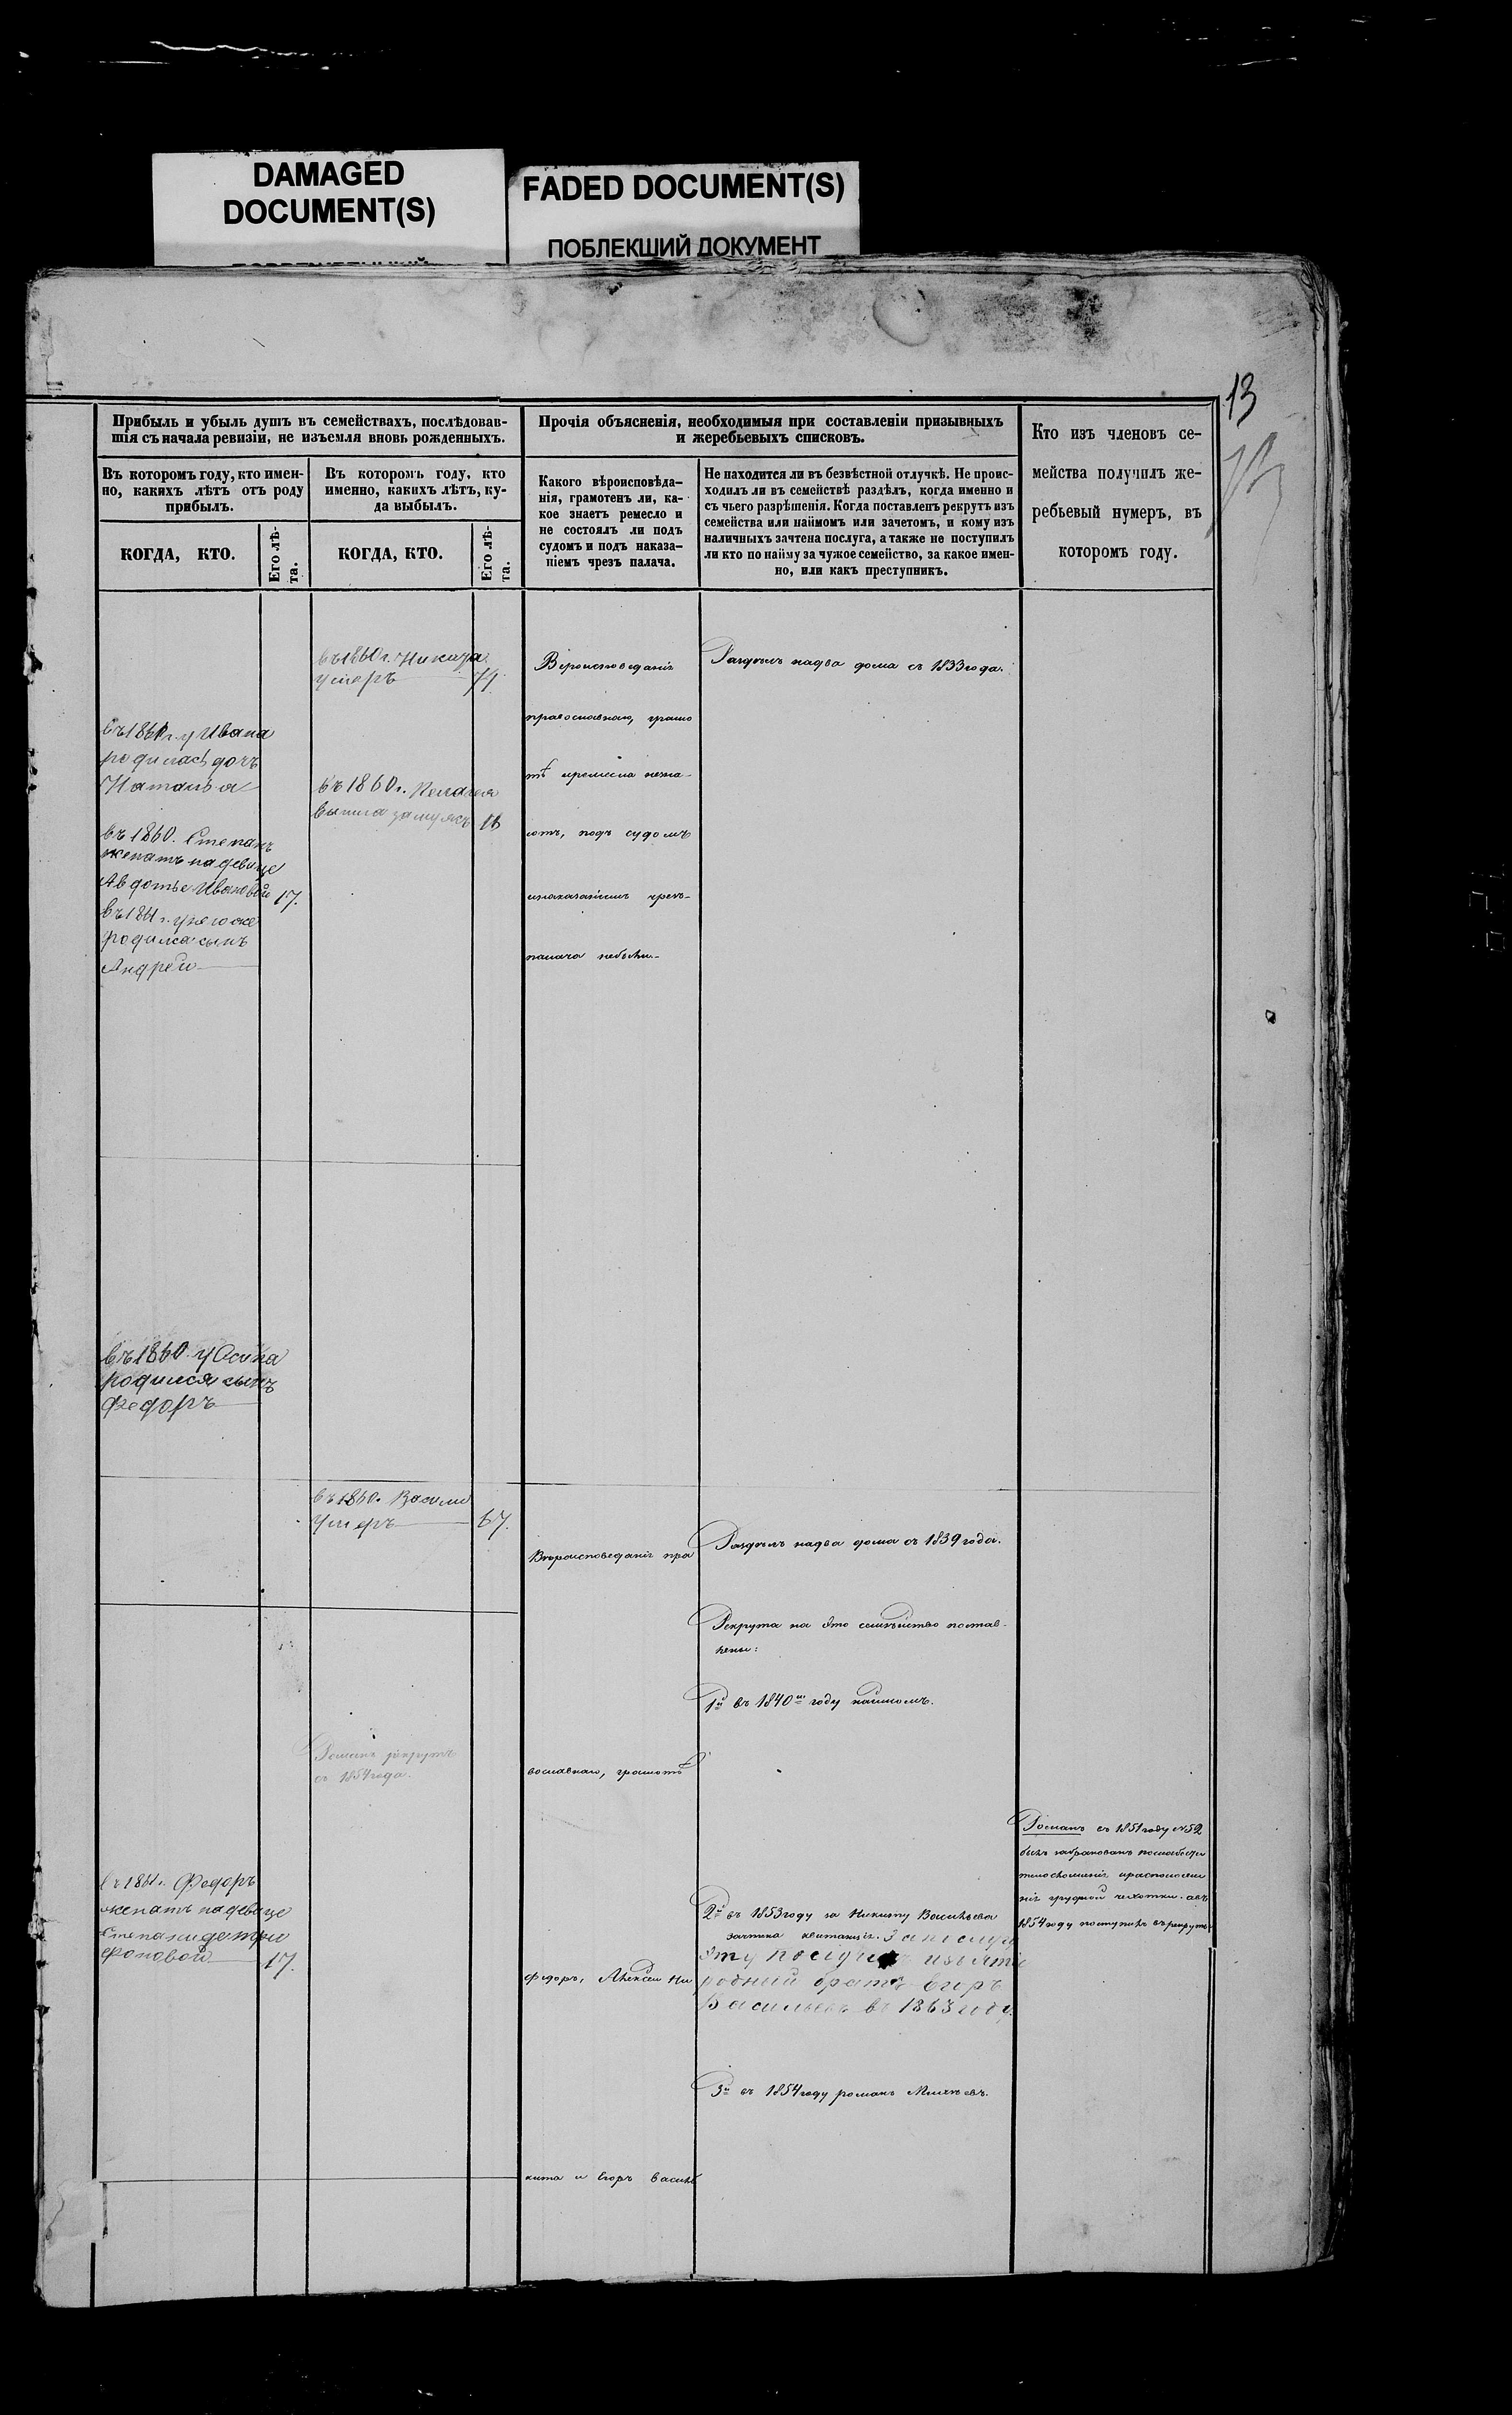 DAMAGED
DOCUMENT(S)
FADED DOCUMENT(S)
ПОБЛЕКШИЙ ДОКУМЕНТ
13
Прибыль и убыль душъ въ семействахъ, послѣдовав-
шія съ начала ревизіи, не изъемля вновь рожденныхъ.
Въ которомъ году, кто имен-
но, какихъ лѣтъ отъ роду
прибылъ.
КОГДА, КТО.
Его лѣ-
та.
Въ которомъ году, кто
именно, какихъ лѣтъ, ку-
да выбылъ.
КОГДА, КТО.
Его лѣ-
та.
Прочія объясненія, необходимыя при составленіи призывныхъ
и жеребьевыхъ списковъ.
Какого вѣроисповѣда-
нія, грамотенъ ли, ка-
кое знаетъ ремесло и
не состоялъ ли подъ
судомъ и подъ наказа-
ніемъ чрезъ палача.
Не находится ли въ безвѣстной отлучкѣ. Не проис-
ходилъ ли въ семействѣ раздѣлъ, когда именно и
съ чьего разрѣшенія. Когда поставленъ рекрутъ изъ
семейства или наймомъ или зачетомъ, и кому изъ
наличныхъ зачтена послуга, а также не поступилъ
ли кто по найму за чужое семейство, за какое имен-
но, или какъ преступникъ.
Кто изъ членовъ се-
мейства получилъ же-
ребьевый нумеръ, въ
которомъ году.
въ 1861 г. у Ивана
родилась дочь
Наталья
въ 1860. Степанъ
женатъ на девице
Авдотье Ивановой 17.
въ 1861 г. у него же
родился сынъ
Андрей
въ 1860. у Осипа
родился сынъ
Федоръ
въ 1861. Федоръ
женатъ на девице
Степаниде Три
фоновой 17.
въ 1860 г. Никита
умеръ 71.
въ 1860 г. Пелагея
вышла замужъ 18
въ 1860. Васили
Умеръ 67.
Романъ рекрутъ
съ 1854 года.
Вероисповеданія
православнаго, грамо
тѣ иремесла незна-
ютъ, подъ судомъ
инаказаніемъ чрезъ-
палача небыли-
Вѣроисповеданія пра
вославнаго, грамотѣ
Федоръ, Алексей Ни
кита и Егоръ Василь
Раздѣлъ надва дома съ 1833 года.
Раздѣлъ надва дома съ 1839 года.
Рекрута на это семѣйство постав-
лены:
1й въ 1840м году наймомъ.
2й въ 1853 году за Никиту Васильева
зачтена квитанція. За
эту послугу
родный братъ Егоръ
Васильевъ въ 1863 году.
3й въ 1854 году романъ
Романъ въ 1851 году №52
былъ забракованъ послабости
телосложенія ирасположе
нія грудной чехотки. авъ
1854 году поступилъ въ рекруты